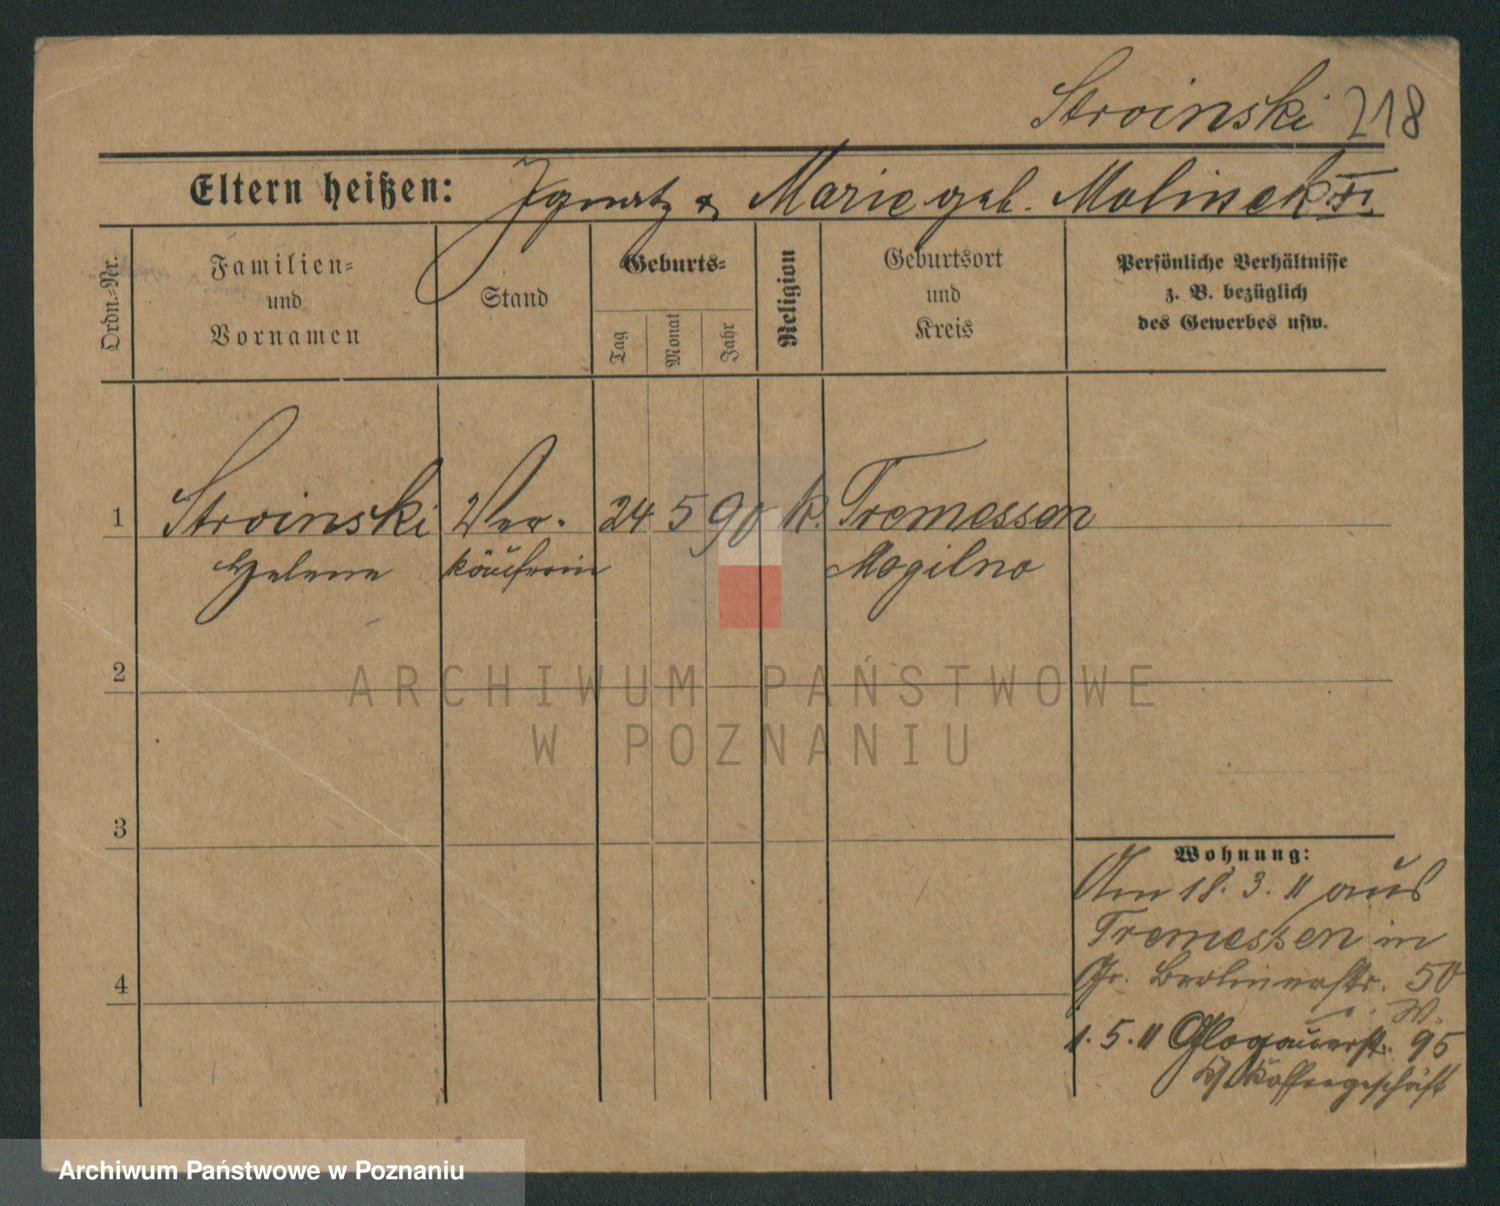 Stroinski 218
Eltern heißen: Ignatz & Marie geb. Molinek
Ordn.=Nr.
Familien=
und
Vornamen
Stand
Geburts=
Tag
Monat
Jahr
Religion
Geburtsort
und
Kreis
Persönliche Verhältnisse
z. B. bezüglich
des Gewerbes usw.
1 Stroinski Ver- 24 5 90 k. Tremessen
Helene käuferin Mogilno
2
ARCHIWUM PAŃSTWOWE
W POZNANIU
3
Wohnung:
Am 18. 3. 11 aus
Tremessen in
4
Gr. Berlinerstr. 50
1. 5. 11 Glogauerst. 95
Kaffeegeschäft
Archiwum Państwowe w Poznaniu